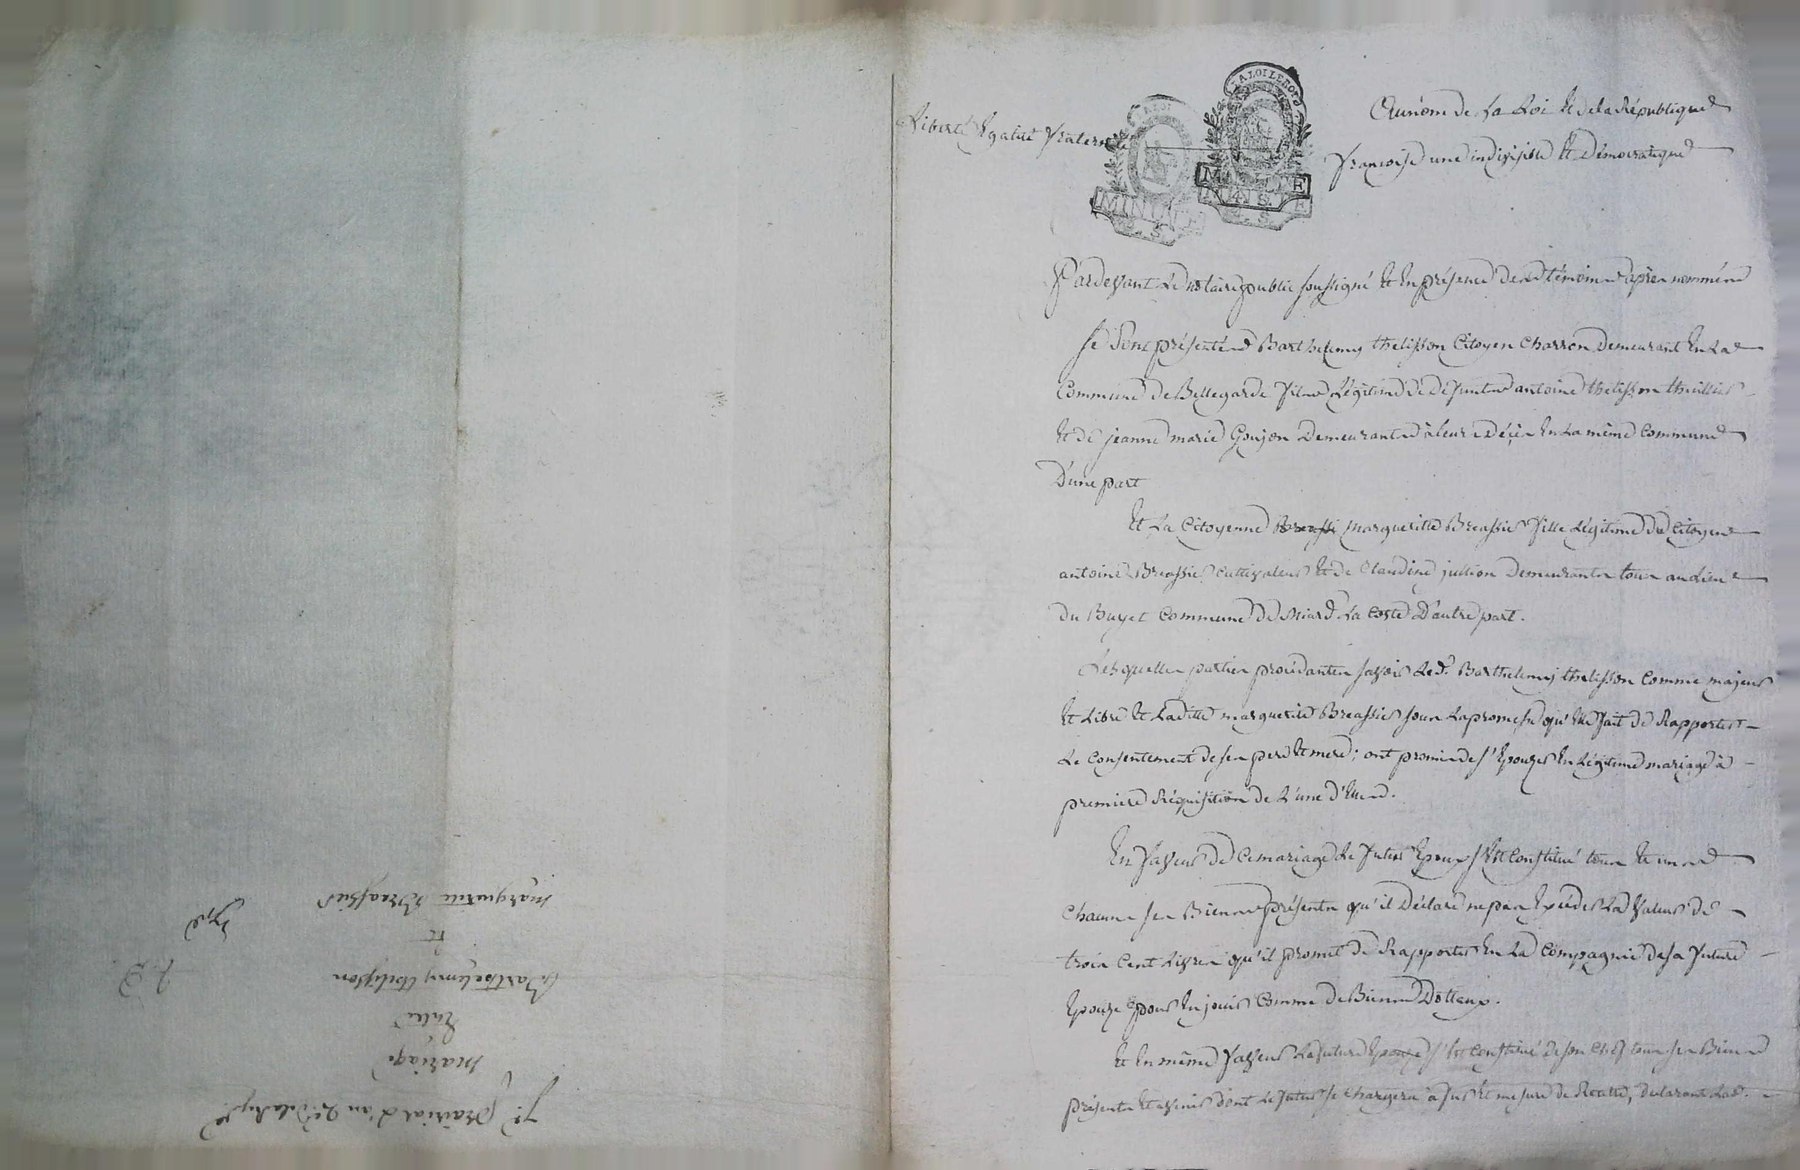 Liberté Egalité Fraternité
LA LOI LE ROI
MINUTE
4 S.
Au nom de La Loi Et de la République
françoise une indivisible Et Démocratique
Pardevant Le notaire public soussigné Et En présence des témoins après nommés
Se Sont présentés Barthelemy thelisson Citoyen Charron Demeurant En La
Commune de Bellegarde fils Légitime de défunts antoine thelisson thuillier
Et de jeanne marie Goujon Demeurants à leur décès En La même Commune
D'une part
Et La Citoyenne Margueritte Breassier fille Légitime du Citoyen
antoine Breassier Cultivateur Et de Claudine jullion Demeurants tous au Lieu
du Buyet Commune de La Coste D'autre part.
Lesquelles parties procédantes savoir Led. Barthelemy thelisson Comme majeur
Et Libre Et Laditte marguerite Breassier sous La promesse qu'Elle fait de Rapporter
Le Consentement de ses pere Et mere; ont promis de s'Epouzer En Légitime mariage à
premiere Réquisition de L'une d'Elles.
En faveur de Ce mariage Le futur Epoux s'Est Constitué tous Et uns
Chacuns ses Biens présents qu'il Déclare ne pas Excéder La Valeur de
trois Cent Livres qu'il promet de Rapporter En La Compagnie de sa future
Epouze pour En jouir Comme de Biens Dotteaux.
Et En même faveur La future Epouze s'Est Constitué de son Chef tous ses Biens
présents Et avenir dont Le futur se Chargera à fur Et mesure de Recette, déclarant Lad.
prairial L'an 2e. de la Rep.
Mariage
Entre
Barthelemy thelisson
Et
Marguerite Breassier